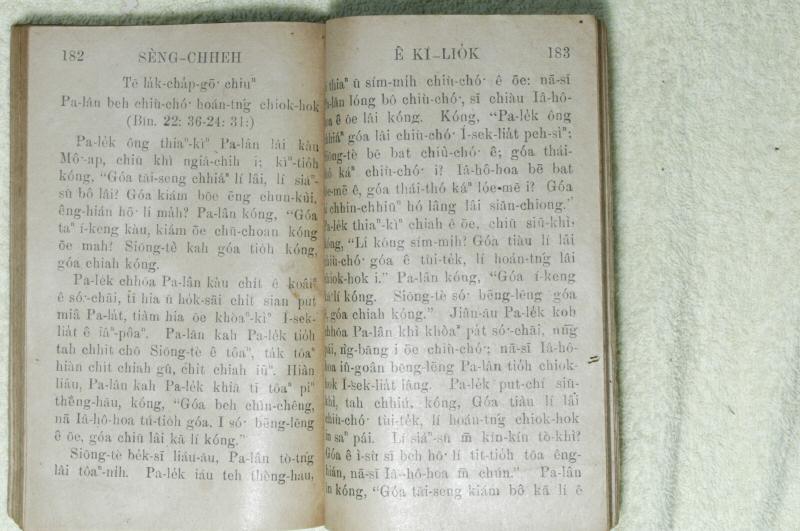 182 SÈNG-CHHEH
Tē la̍k-cha̍p-gō͘ chiuⁿ
Pa-lân beh chiù-chó͘ hoán-tńg chiok-hok
(Bîn. 22: 36-24: 31:)
Pa-le̍k ông thiaⁿ-kìⁿ Pa-lân lâi kàu
Mô͘-ap, chiū khì ngiâ-chih i; kìⁿ-tio̍h
kóng, “Góa tāi-seng chhiáⁿ lí lâi, lí siáⁿ-
sū bô lâi? Góa kiám bōe ēng chun-kùi,
êng-hián hō͘ lí mah? Pa-lân kóng, “Góa
taⁿ í-keng kàu, kiám ōe chū-choan kóng
ōe mah? Siōng-tè kah góa tio̍h kóng,
góa chiah kóng.
Pa-le̍k chhōa Pa-lân kàu chi̍t ê koâiⁿ
ê só͘-chāi, tī hia ū ho̍k-sāi chi̍t sian pu̍t
miâ Pa-la̍t, tiàm hia ōe khòaⁿ-kìⁿ Í-sek-
lia̍t ê iâⁿ-pôaⁿ. Pa-lân kah Pa-le̍k tio̍h
tah chhit chō Siōng-tè ê tôaⁿ, ta̍k tôaⁿ
hiàn chi̍t chiah gû, chi̍t chiah iûⁿ. Hiàn
liáu, Pa-lân kah Pa-le̍k khiā tī tôaⁿ piⁿ
thèng-hāu, kóng, “Góa beh chìn-chêng,
nā Iâ-hô-hoa tú-tio̍h góa. I só͘ bēng-lēng
ê ōe, góa chiū lâi kā lí kóng.”
Siōng-tè be̍k-sī liáu-āu, Pa-lân tò-tńg
lâi tôaⁿ-nih. Pa-le̍k iáu teh thèng-hāu,
Ê KÌ-LIO̍K 183
thiaⁿ ū sím-mih chiù-chó͘ ê ōe: nā-sī
lóng bô chiù-chó͘, sī chiàu Iâ-hô-
ê ōe lâi kóng. Kóng, “Pa-le̍k ông
góa lâi chiù-chó͘ Í-sek-lia̍t peh-sìⁿ;
bē bat chiù-chó͘ ê; góa thái-
káⁿ chiù-chó͘ i? Iâ-hô-hoa bē bat
ê, góa thái-thó káⁿ lóe-mē i? Góa
chhin-chhiūⁿ hō lâng lâi siān-chiong.”
thiaⁿ-kìⁿ chiah ê ōe, chiū siū-khì,
“Lí kóng sím-mih? Góa tiàu lí lâi
góa ê tùi-te̍k, lí hoán-tńg lâi
i.” Pa-lân kóng, “Góa í-keng
lí kóng. Siōng-tè só͘ bēng-lēng góa
góa chiah kóng.” Jiân-āu Pa-le̍k koh
Pa-lân khì khòaⁿ pa̍t só͘-chāi, nn̄g
ǹg-bāng i ōe chiù-chó͘; nā-sī Iâ-hô-
iû-goân bēng-lēng Pa-lân tio̍h chiok-
Í-sek-lia̍t lâng. Pa-le̍k put-chí siū-
tah chhiú, kóng, Góa tiàu lí lâi
tùi-te̍k, lí hoán-tńg chiok-hok
saⁿ pái. Lí siáⁿ-sū m̄ kín-kín tò-khì?
Góa ê ì-sù sī beh hō͘ lí tit-tio̍h tōa êng-
nā-sī Iâ-hô-hoa m̄ chún.” Pa-lân
kóng, “Góa tāi-seng kiám bô kā lí ê